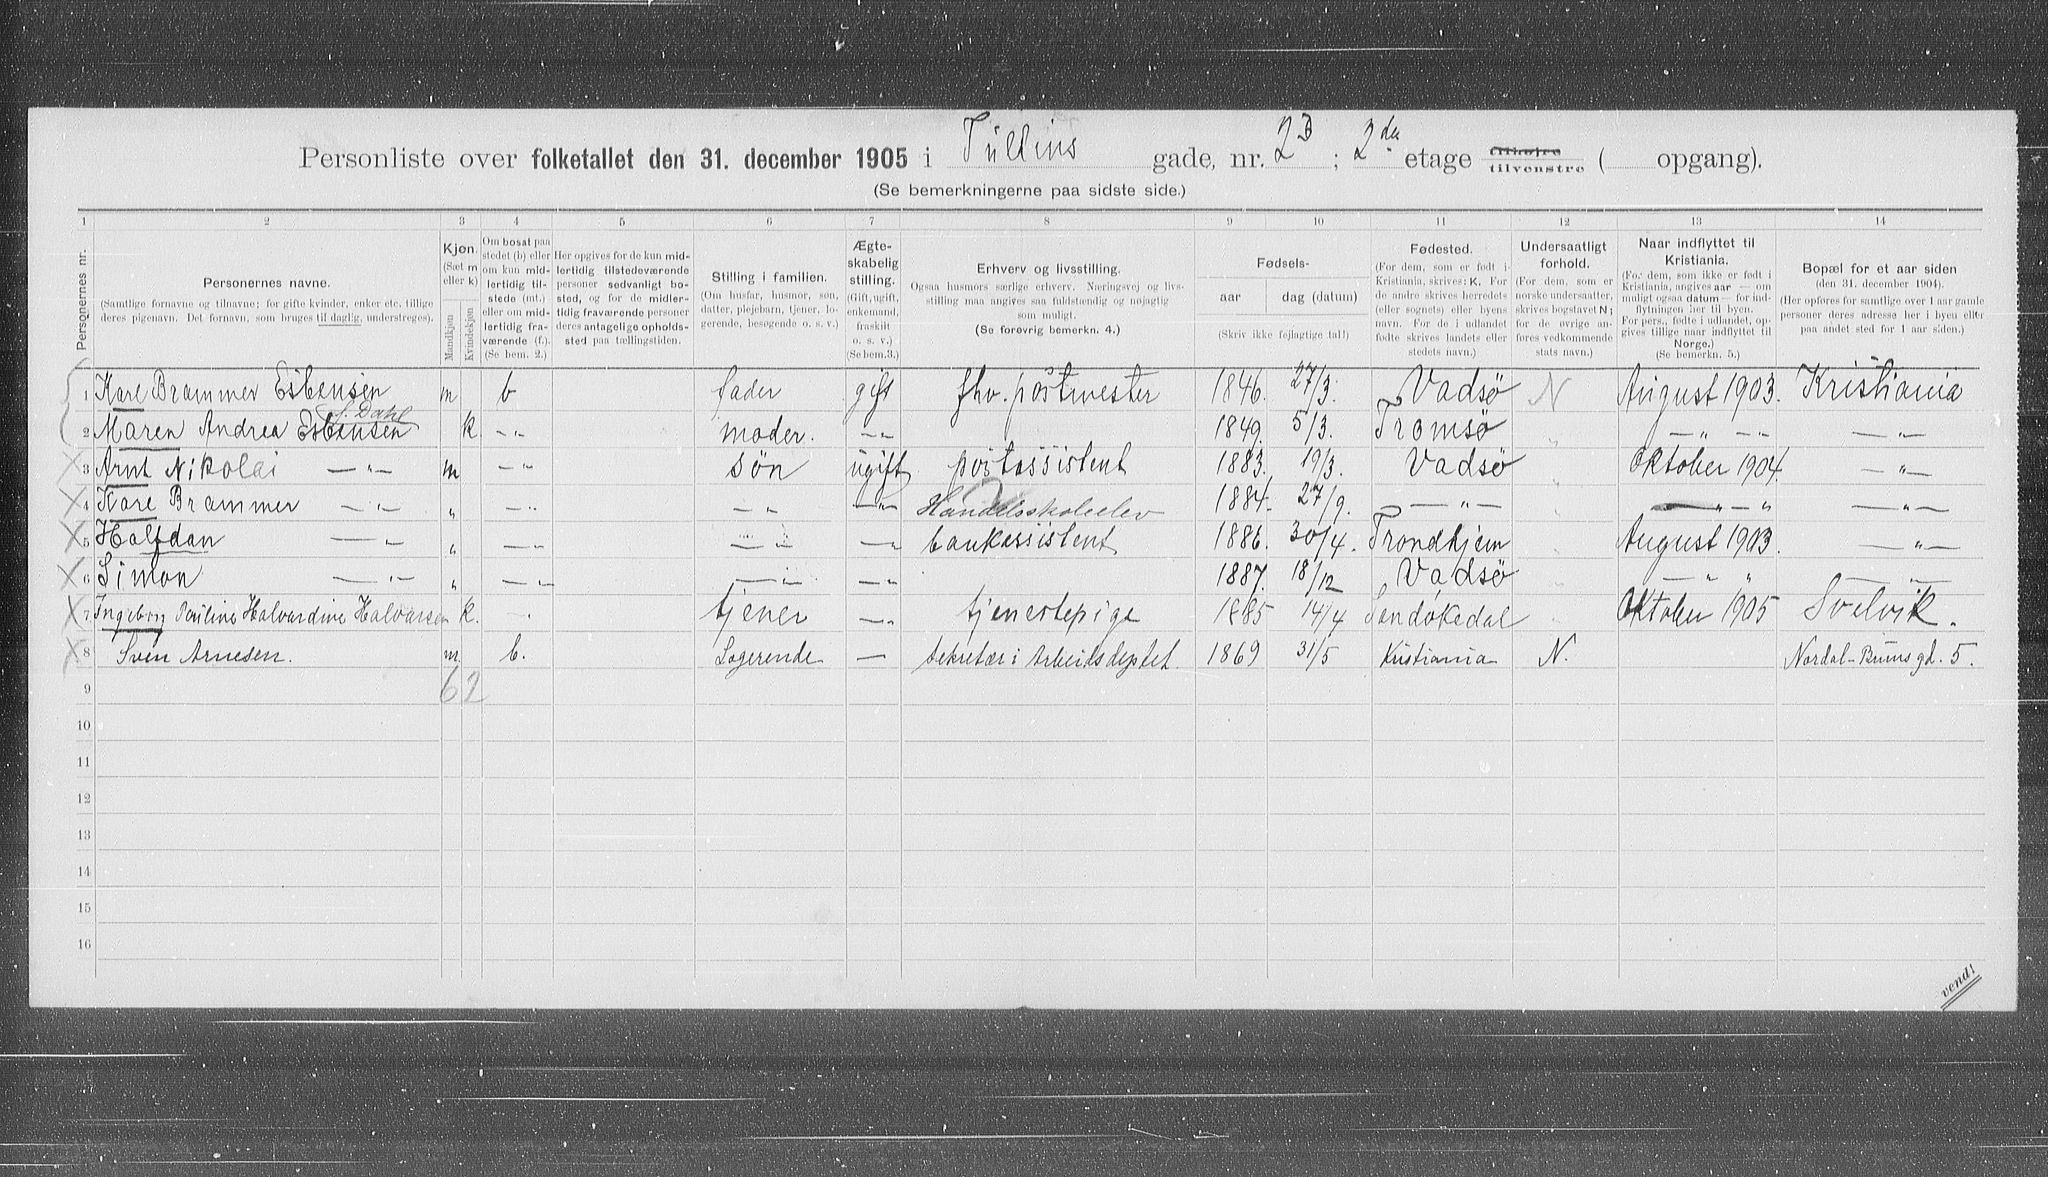 Personliste over folketallet den 31. december 1905 i Tullins gade, nr. 2B; 2den etage tilhøire tilvenstre ( opgang).
(Se bemerkningerne paa sidste side.)
1 2 3 4 5 6 7 8 9 10 11 12 13 14
Personernes nr.
Personernes navne.
(Samtlige fornavne og tilnavne; for gifte kvinder, enker etc. tillige deres pigenavn. Det fornavn, som bruges til daglig, understreges).
Kjøn.
(Sæt m eller k)
Mandkjøn
Kvindekjøn
Om bosat paa stedet (b) eller om kun midlertidig tilstede (mt.) eller om midlertidig fraværende (f.). (Se bem. 2.)
Her opgives for de kun midlertidig tilstedeværende personer sedvanligt bosted, og for de midlertidig fraværende personer deres antagelige opholdssted paa tællingstiden.
Stilling i familien.
(Om husfar, husmor, søn, datter, plejebarn, tjener, logerende, besøgende o. s. v.)
Ægteskabelig stilling.
(Gift, ugift, enkemand, fraskilt o. s. v.) (Se bem. 3.)
Erhverv og livsstilling.
Ogsaa husmors særlige erhverv. Næringsvej og livsstilling maa angives saa fuldstændig og nøjagtig som muligt.
(Se forøvrig bemerkn. 4.)
Fødsels-
aar
dag (datum)
(Skriv ikke fejlagtige tal!)
Fødested.
(For dem, som er født i Kristiania, skrives: K. For de andre skrives herredets (eller sognets) eller byens navn. For de i udlandet fødte skrives landets eller stedets navn.)
Undersaatligt forhold.
(For dem, som er norske undersaatter, skrives bogstavet N; for de øvrige anføres vedkommende stats navn.)
Naar indflyttet til Kristiania.
(For dem, som ikke er født i Kristiania, angives aar — om muligt ogsaa datum — for indflytningen her til byen. For pers., fødte i udlandet, opgives tillige naar indflyttet til Norge.)
(Se bemerkn. 5.)
Bopæl for et aar siden
(den 31. december 1904).
(Her opføres for samtlige over 1 aar gamle personer deres adresse her i byen eller paa andet sted for 1 aar siden.)
1 Kare Brammer Esbensen m b fader gift fhv. postmester 1846. 27/3. Vadsø N August 1903. Kristiania
f. Dahl
2 Maren Andrea Esbensen k. -„- moder. -„- 1849. 5/3. Tromsø „ -„- -„- -„-
3 Arnt Nikolai -„- m -„- søn ugift postassistent 1883. 19/3. Vadsø „ Oktober 1904. -„-
4 Kare Brammer -„- „ -„- -„- -„- Handelsskoleelev 1884. 27/9. -„- „ „ „ -„-
5 Halfdan -„- „ -„- -„- -„- bankassistent 1886. 30/4. Trondhjem „ August 1903. -„-
6 Simon -„- „ -„- -„- -„- 1887. 18/12 Vadsø „ -„- „ -„-
7 Ingeborg Pauline Halvardine Halvorsen k. -„- tjener -„- tjenestepige 1885 14/4 Sandøkedal „ Oktober 1905 Svelvik.
8 Sven Arnesen. m b. Logerende — Sekretær i Arbeidsdeptet. 1869 31/5 Kristiania N. Nordal-Brunsgd. 5.
9 62
10
11
12
13
14
15
16
vend!